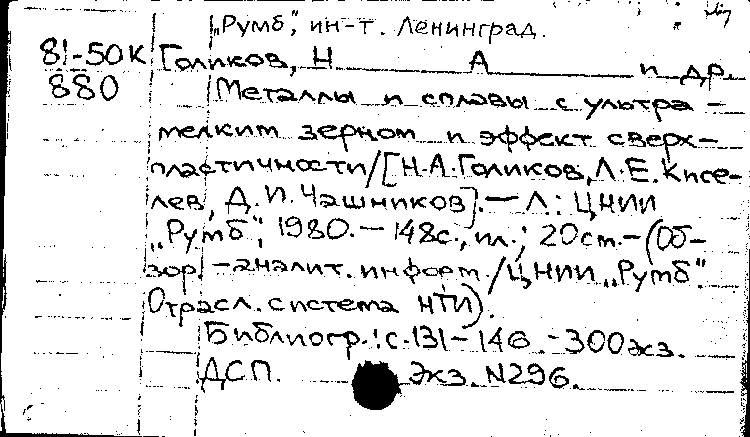 „Румб", ин-т. Ленинград.
81-50К Голиков, Н А и др.
880 Металлы и сплавы с ультра-
мелким зерном и эффект сверх-
пластичности/[Н.А.Голиков, Л.Е.Кисе-
лев, Д.И.Чашников].—Л.: ЦНИИ
„Румб", 1980.—148с., ил.; 20см.—(Об-
зор.-аналит. информ./ЦНИИ „Румб".
Отрасл. система НТИ).
Библиогр.: с.131-146.-300экз.
ДСП. Экз. N296.